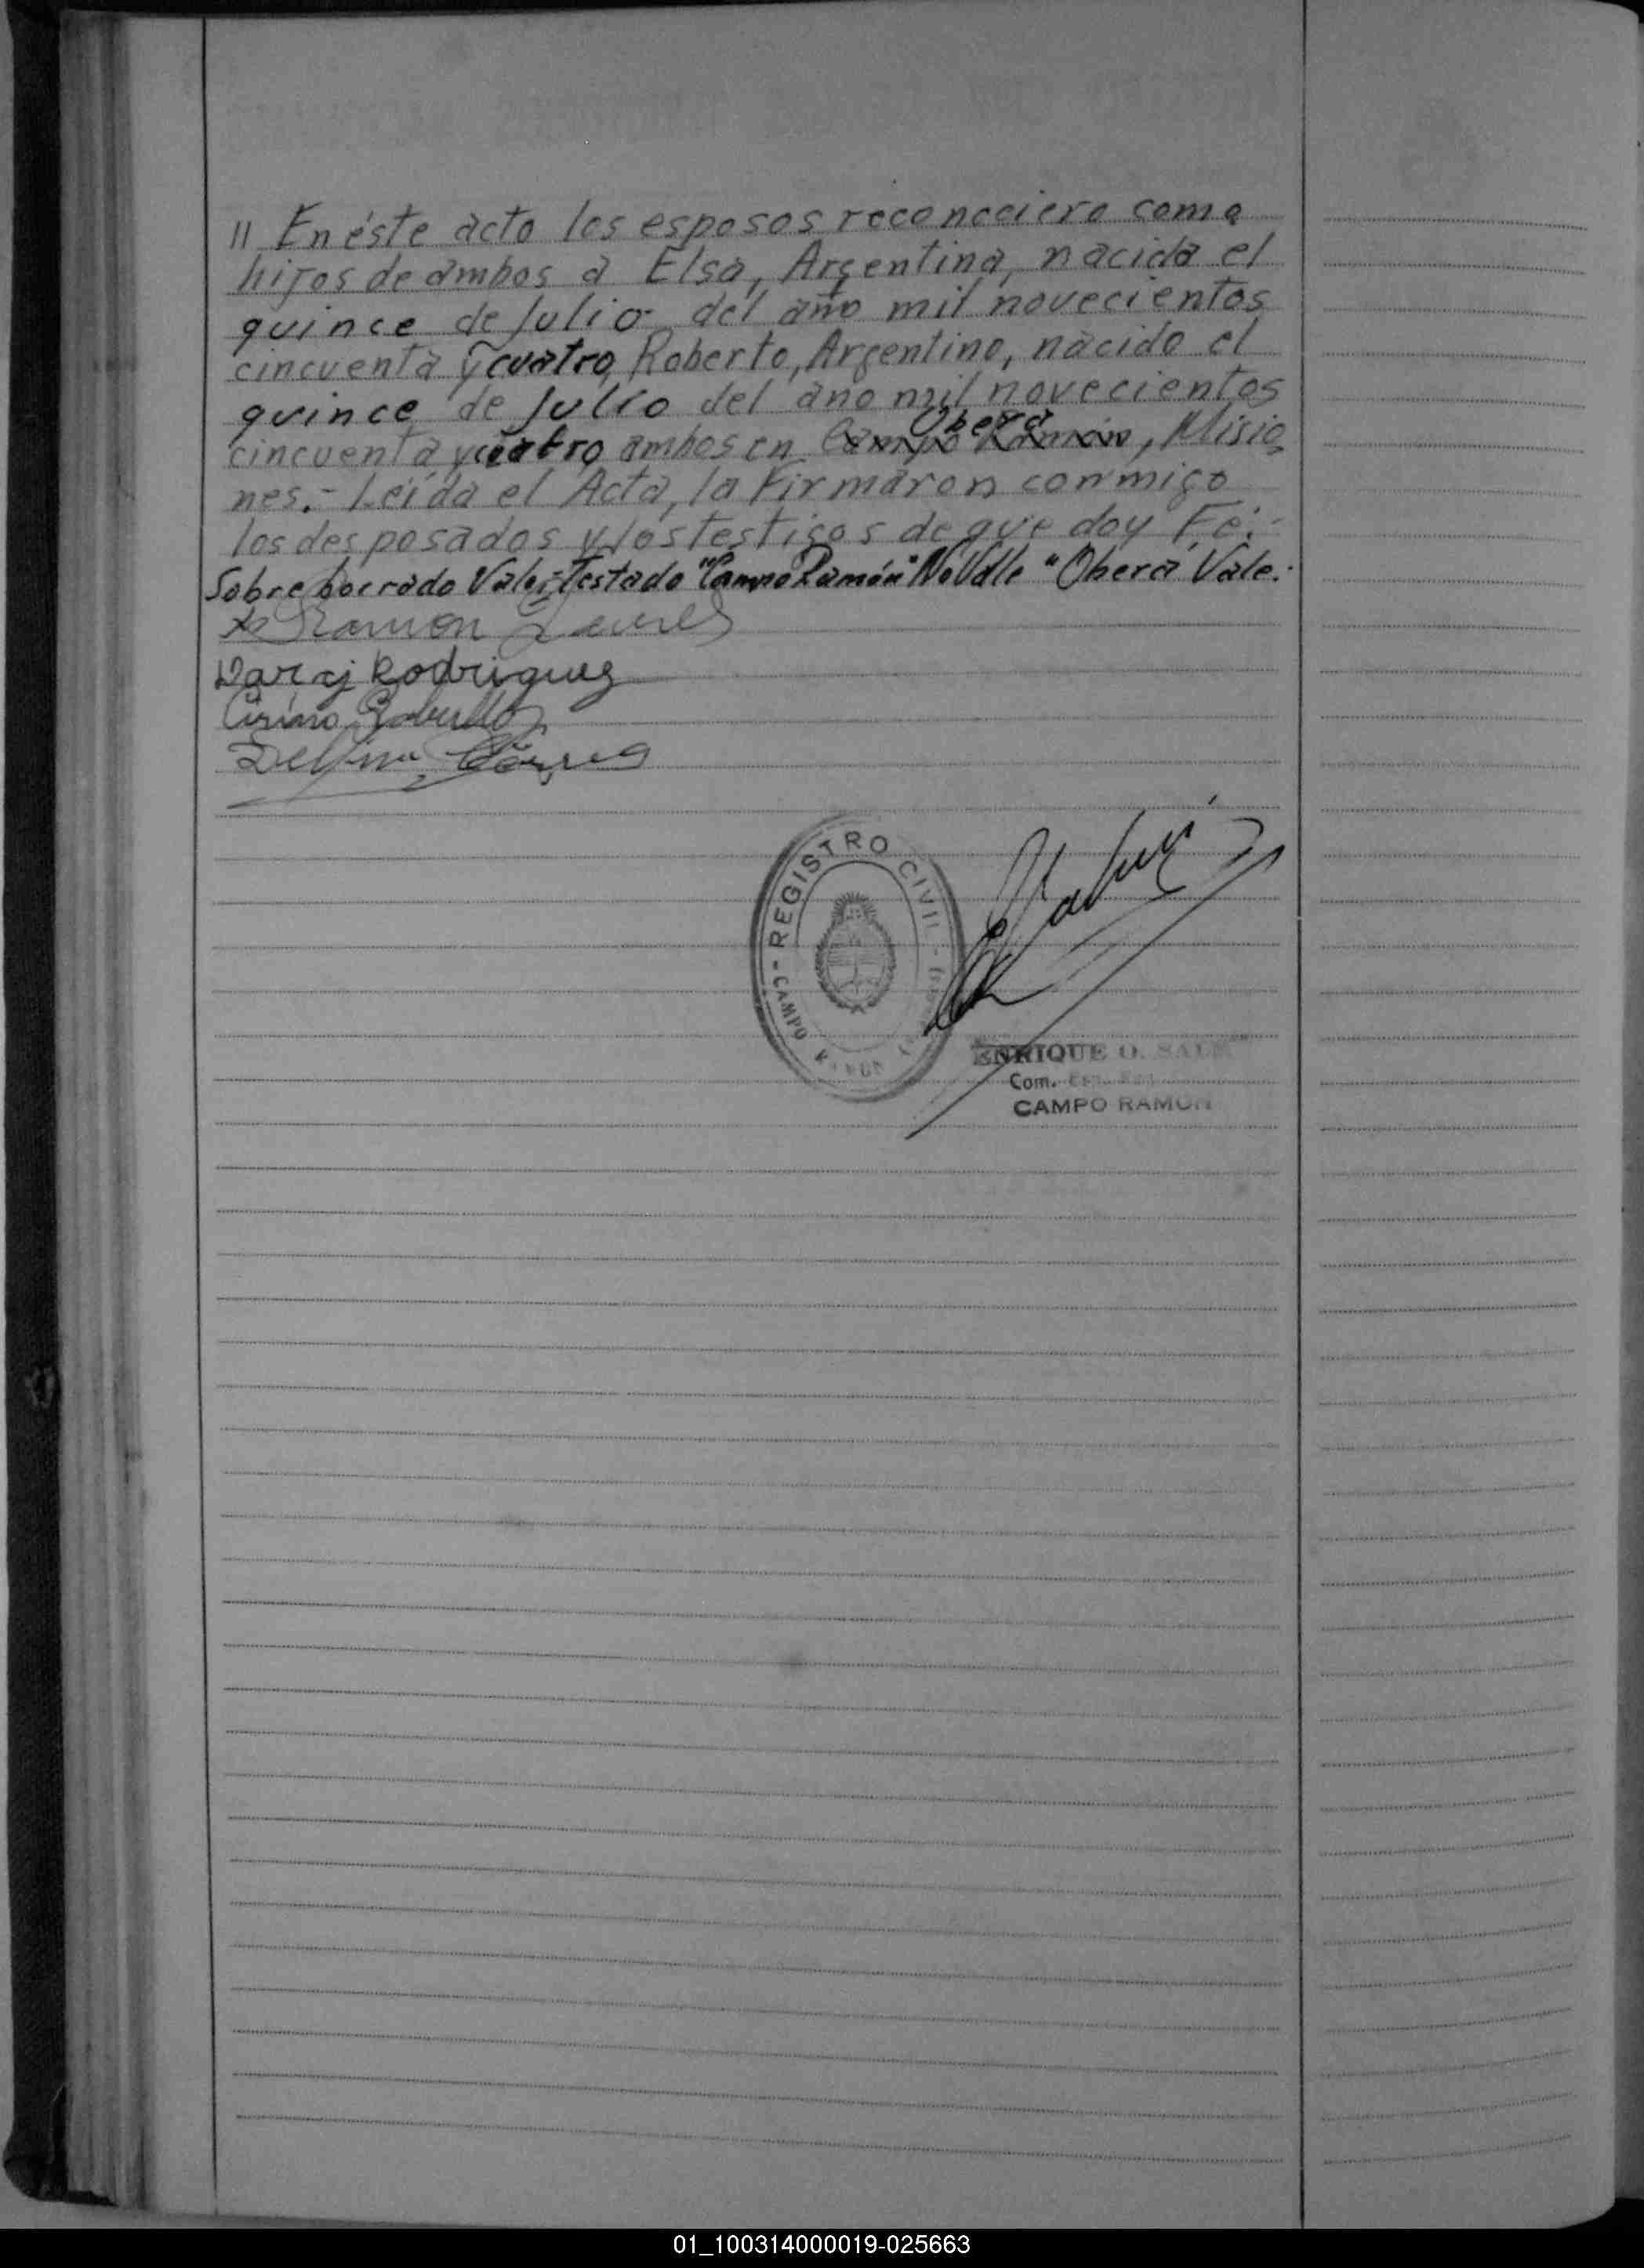 11 En éste acto los esposos reconociero como
hijos de ambos a Elsa, Argentina, nacida el
quince de Julio del año mil novecientos
cincuenta y cuatro, Roberto, Argentino, nacido el
quince de Julio del año mil novecientos
Oberá
cincuenta y cuatro ambos en Campo Ramón, Misio
nes.- Leída el Acta, la Firmaron conmigo
los desposados y los testigos de que doy Fé.-
Sobre borrado Vale: Testado "Campo Ramón" No Valle "Oberá Vale.-
Ramon
Darcy Rodriguez
Cirino
Delfina
- REGISTRO CIVIL -
CAMPO RAMON
ENRIQUE O.
Com.
CAMPO RAMON
01_100314000019-025663